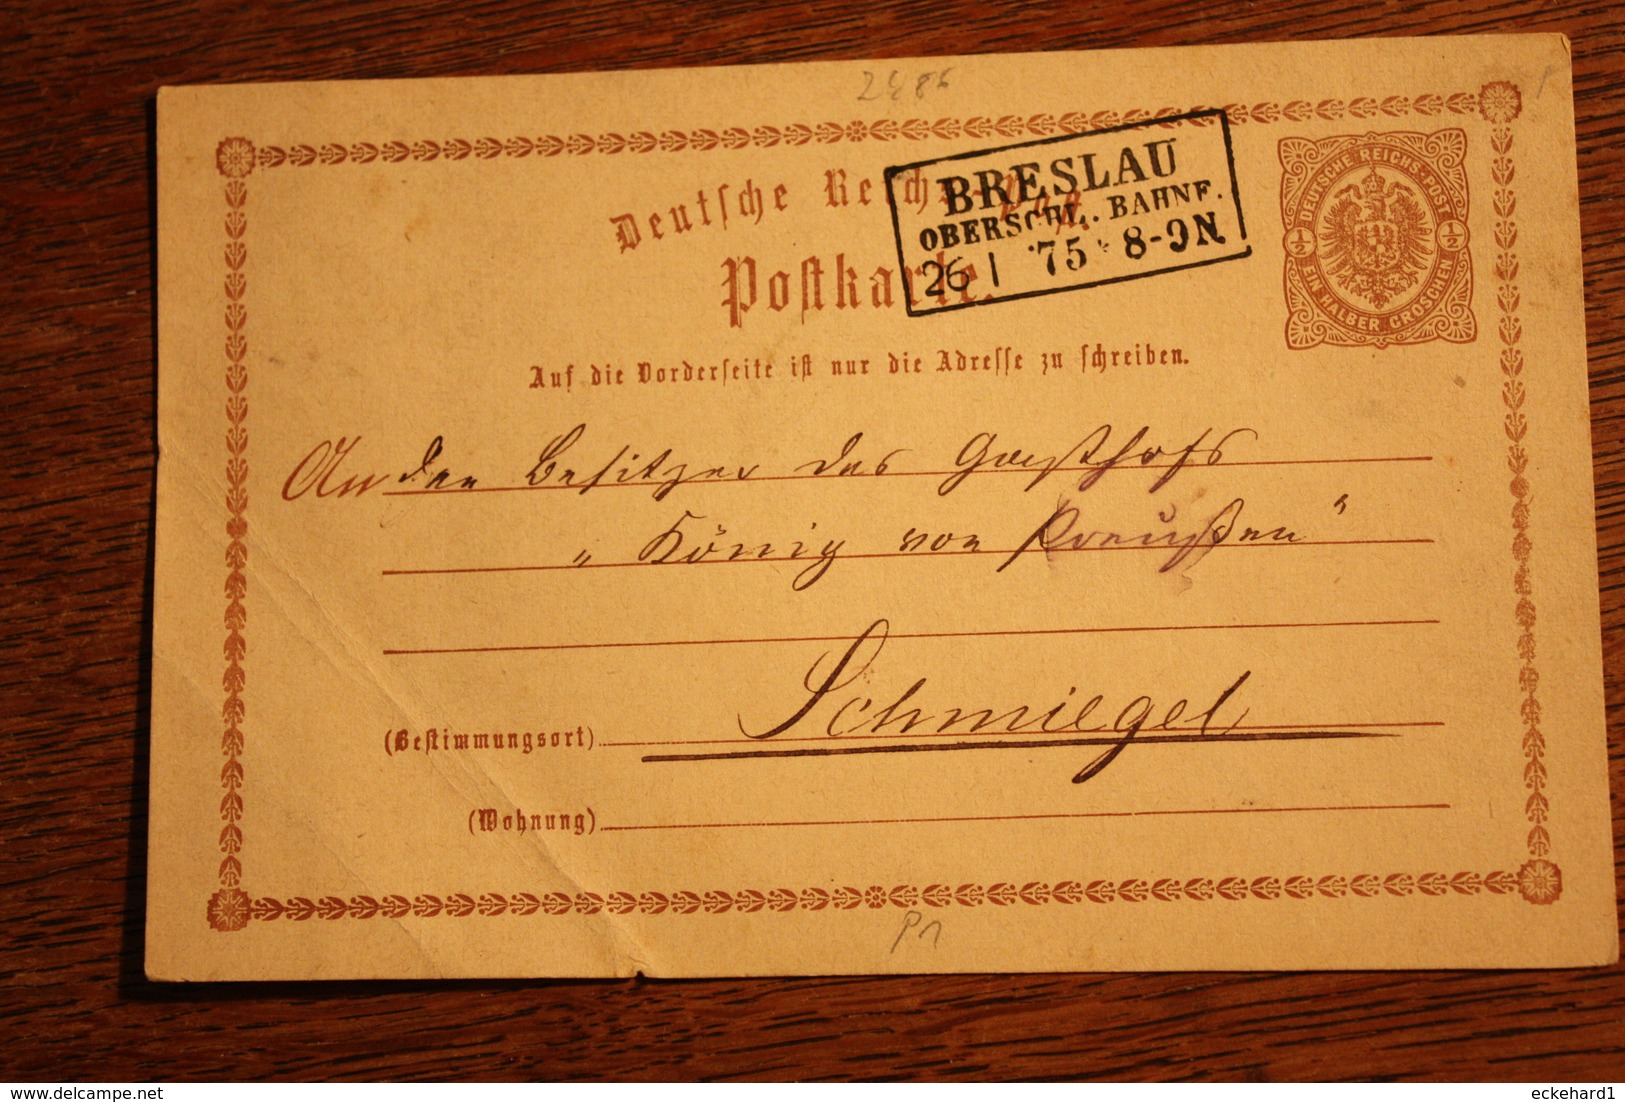 2486
Deutsche Reichs-Post.
BRESLAU
OBERSCHL. BAHNF.
26 1 '75 * 8-9N
DEUTSCHE REICHS-POST
½ ½
EIN HALBER GROSCHEN
Postkarte.
Auf die Vorderseite ist nur die Adresse zu schreiben.
An den Besitzer des Gasthofs
„König von Preußen"
Schmiegel
(Bestimmungsort)
(Wohnung)
P1
eckehard1